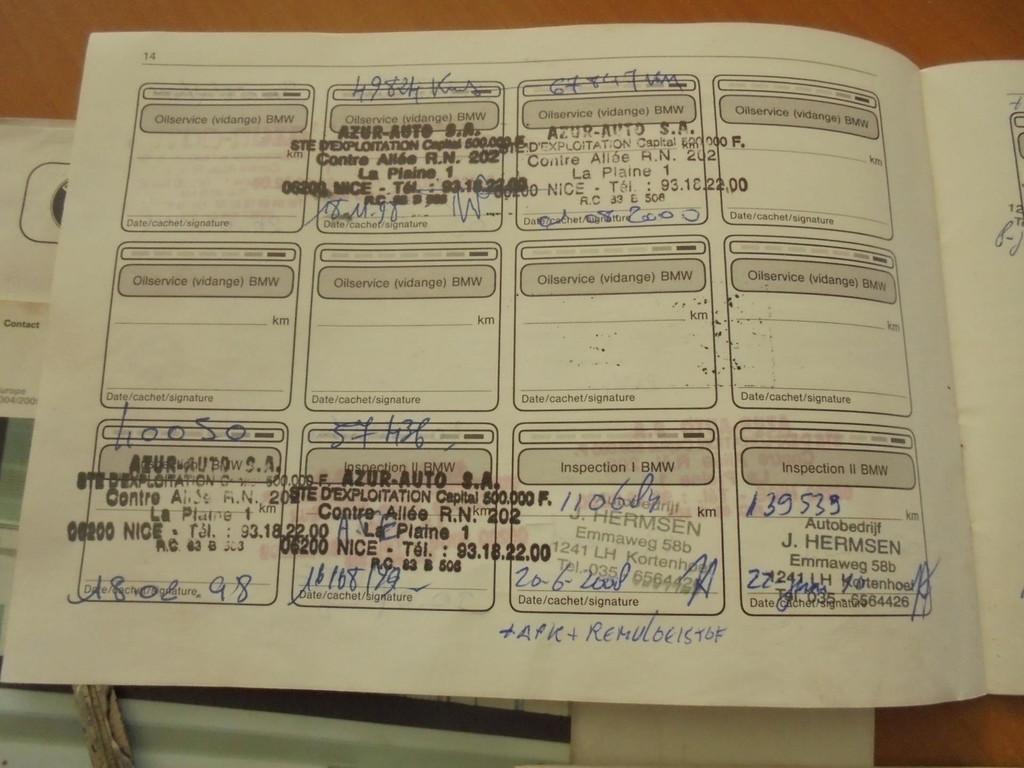 14
49824 Kms
67847 Km
Oilservice (vidange) BMW
Oilservice (vidange) BMW
Oilservice (vidange) BMW
Oilservice (vidange) BMW
km
AZUR-AUTO S.A.
STE D'EXPLOITATION Capital 500.000 F.
Contre Allée R.N. 202
La Plaine 1
06200 NICE - Tél. : 93.18.22.00
R.C 83 B 506
18.11.98
AZUR-AUTO S.A.
STE D'EXPLOITATION Capital 500.000 F.
Contre Allée R.N. 202
La Plaine 1
06200 NICE - Tél. : 93.18.22.00
R.C 83 B 506
01 08 2000
km
Date/cachet/signature
Date/cachet/signature
Date/cachet/signature
Date/cachet/signature
Oilservice (vidange) BMW
Oilservice (vidange) BMW
Oilservice (vidange) BMW
Oilservice (vidange) BMW
km
km
km
km
Date/cachet/signature
Date/cachet/signature
Date/cachet/signature
Date/cachet/signature
40050
57 436
Inspection I BMW
Inspection II BMW
Inspection I BMW
Inspection II BMW
AZUR-AUTO S.A.
STE D'EXPLOITATION Capital 500.000 F.
Contre Allée R.N. 202
La Plaine 1
06200 NICE - Tél. : 93.18.22.00
R.C. 83 B 503
18 02 98
Date/cachet/signature
AZUR-AUTO S.A.
STE D'EXPLOITATION Capital 500.000 F.
Contre Allée R.N. 202
La Plaine 1
06200 NICE - Tél. : 93.18.22.00
R.C 83 B 506
16/08/99
Date/cachet/signature
110684
km
Autobedrijf
J. HERMSEN
Emmaweg 58b
1241 LH Kortenhoef
Tel. 035 - 6564426
20-6-2008
Date/cachet/signature
139539
km
Autobedrijf
J. HERMSEN
Emmaweg 58b
1241 LH Kortenhoef
Tel. 035 - 6564426
Date/cachet/signature
+ APK + REMVLOEISTOF
Contact